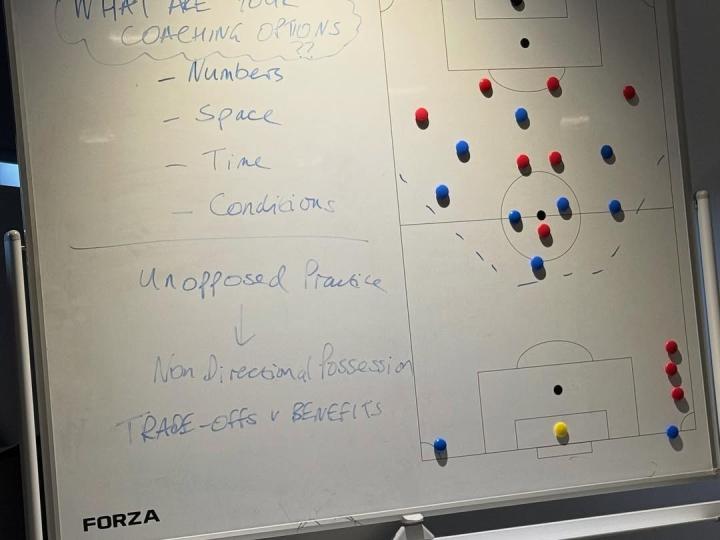 WHAT ARE YOUR
COACHING OPTIONS
??
- Numbers
- Space
- Time
- Conditions
Unopposed Practice
↓
Non Directional Possession
TRADE-OFFS v BENEFITS
FORZA